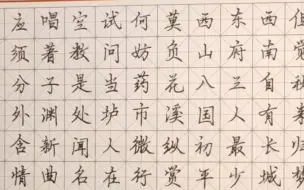 但觉秋春归梦
西南自有长城
东府三人最少
西山八国初平
莫负花溪纵赏
何妨药市微行
试问当垆人在
空教是处闻名
唱著子渊新曲
应须分外含情